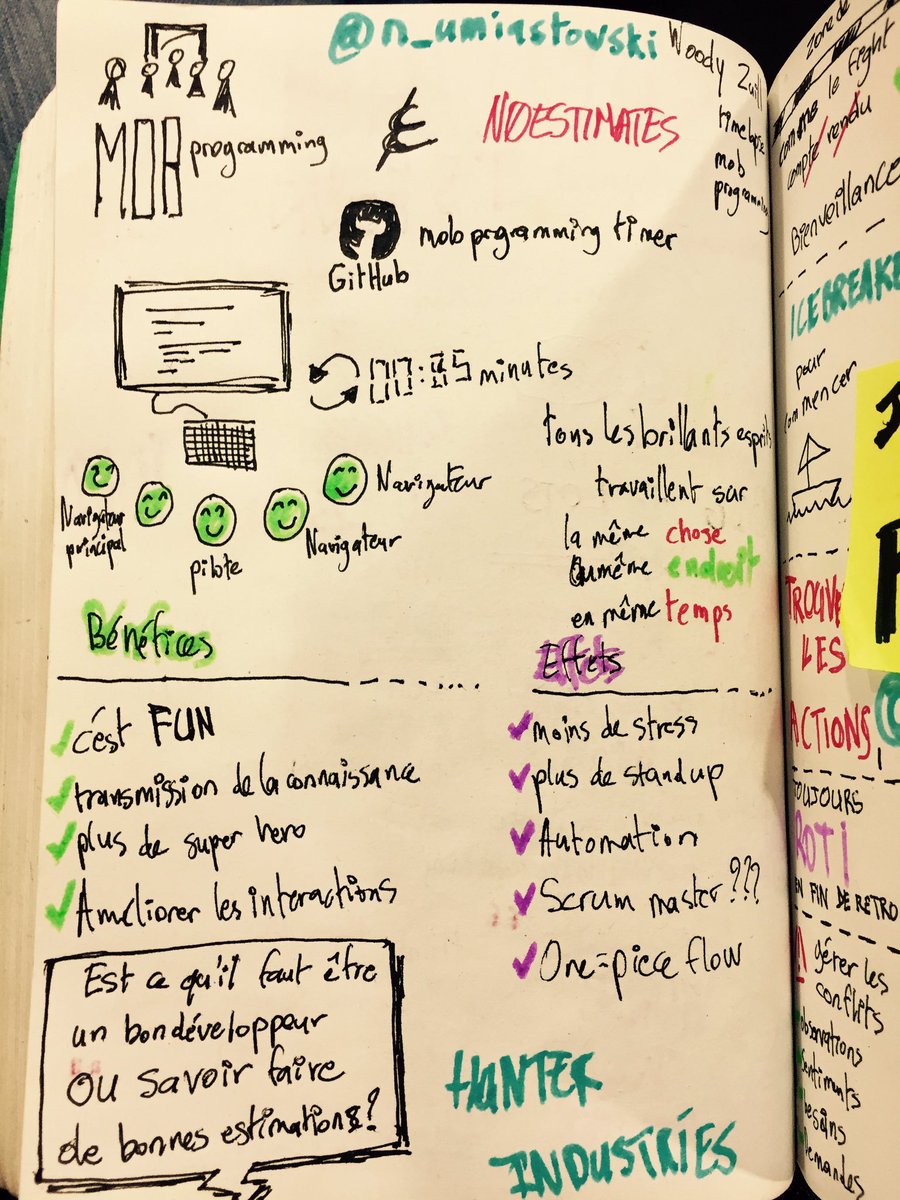 @n_umiastowski
Woody Zuill
time lapse
mob
programming
MOB programming
& NOESTIMATES
GitHub
mob programming timer
00:05 minutes
tous les brillants esprits
travaillent sur
la même chose
au même endroit
en même temps
Navigateur
principal
pilote
Navigateur
Navigateur
Bénéfices
c'est FUN
transmission de la connaissance
plus de super hero
Améliorer les interactions
Effets
moins de stress
plus de standup
Automation
Scrum master ???
One-piece flow
Est ce qu'il faut être
un bon développeur
OU savoir faire
de bonnes estimations ?
HUNTER
INDUSTRIES
zone de
comme le fight
compte rendu
Bienveillance
ICEBREAKE
pour
commencer
TROUVE
LES
ACTIONS
TOUJOURS
ROTI
EN FIN DE RETRO
gérer les
conflits
observations
sentiments
besoins
demandes